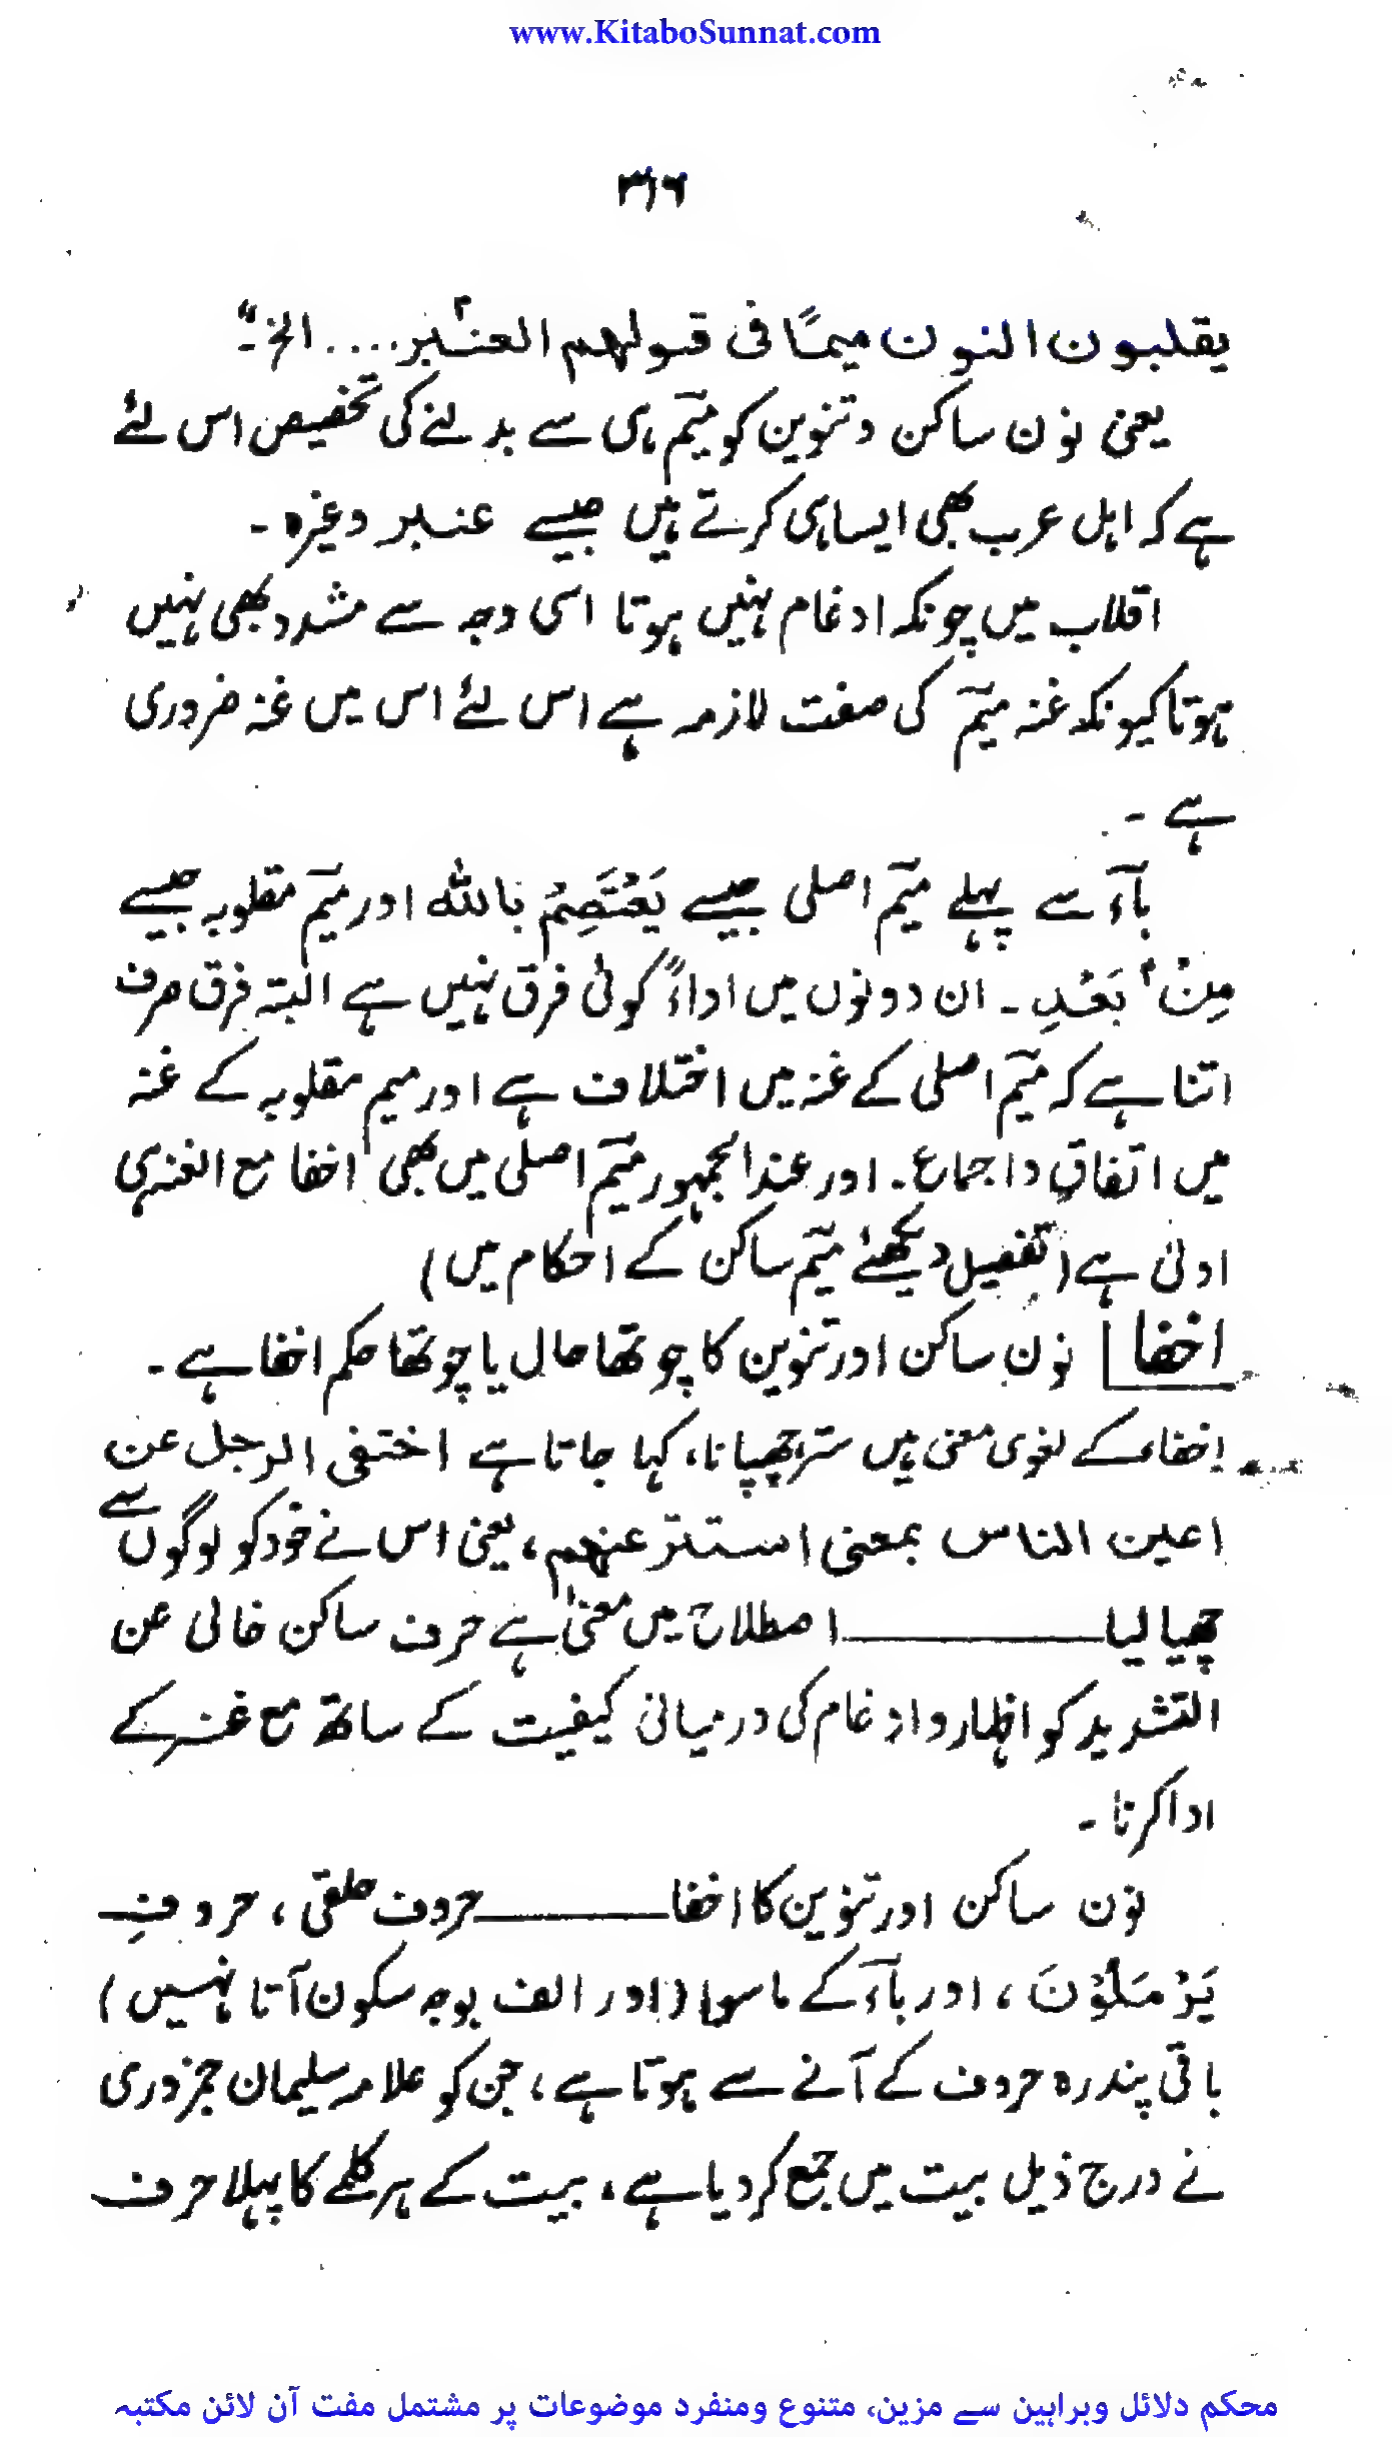 www.KitaboSunnat.com
۳۱۶
یقلبون النون میمًا فی قولہم العنۢبر.... الخ۔"
یعنی نون ساکن و تنوین کو میٓم ہی سے بدلنے کی تخصیص اس لئے
ہے کہ اہل عرب بھی ایسا ہی کرتے ہیں جیسے عنبر وغیرہ ۔
اقلاب میں چونکہ ادغام نہیں ہوتا اسی وجہ سے مشدد بھی نہیں
ہوتا کیونکہ غنہ میٓم کی صفت لازمہ ہے اس لئے اس میں غنہ ضروری
ہے ۔
بآء سے پہلے میٓم اصلی جیسے یَعْتَصِمْ باللّٰہ اور میٓم مقلوبہ جیسے
مِنْۢ بَعْدِ ۔ ان دونوں میں اداءً کوئی فرق نہیں ہے البتہ فرق صرف
اتنا ہے کہ میٓم اصلی کے غنہ میں اختلاف ہے اور میم مقلوبہ کے غنہ
میں اتفاقِ و اجماع ۔ اور عند الجمہور میٓم اصلی میں بھی اخفا مع الغنہ ہی
اولیٰ ہے (تفصیل دیکھئے میٓم ساکن کے احکام میں)
اخفا نون ساکن اور تنوین کا چوتھا حال یا چوتھا حکم اخفا ہے ۔
اِخفاء کے لغوی معنی ہیں ستر چھپانا، کہا جاتا ہے اختفی الرجل عن
اعین الناس بمعنی استتر عنہم، یعنی اس نے خود کو لوگوں سے
چھپا لیا ـــــــــ اصطلاح میں معنیٰ ہے حرف ساکن خالی عن
التشدید کو اظہار و ادغام کی درمیانی کیفیت کے ساتھ مع غنہ کے
ادا کرنا ۔
نون ساکن اور تنوین کا اخفا ـــــــــ حروف حلقی ، حروفِ
یَرْمَلُوْنَ ، اور بآء کے ماسوا (اور الف بوجہ سکون آتا نہیں)
باقی پندرہ حروف کے آنے سے ہوتا ہے، جن کو علامہ سلیمان جمزوری
نے درج ذیل بیت میں جمع کر دیا ہے، بیت کے ہر کلمے کا پہلا حرف
محکم دلائل وبراہین سے مزین، متنوع ومنفرد موضوعات پر مشتمل مفت آن لائن مکتبہ